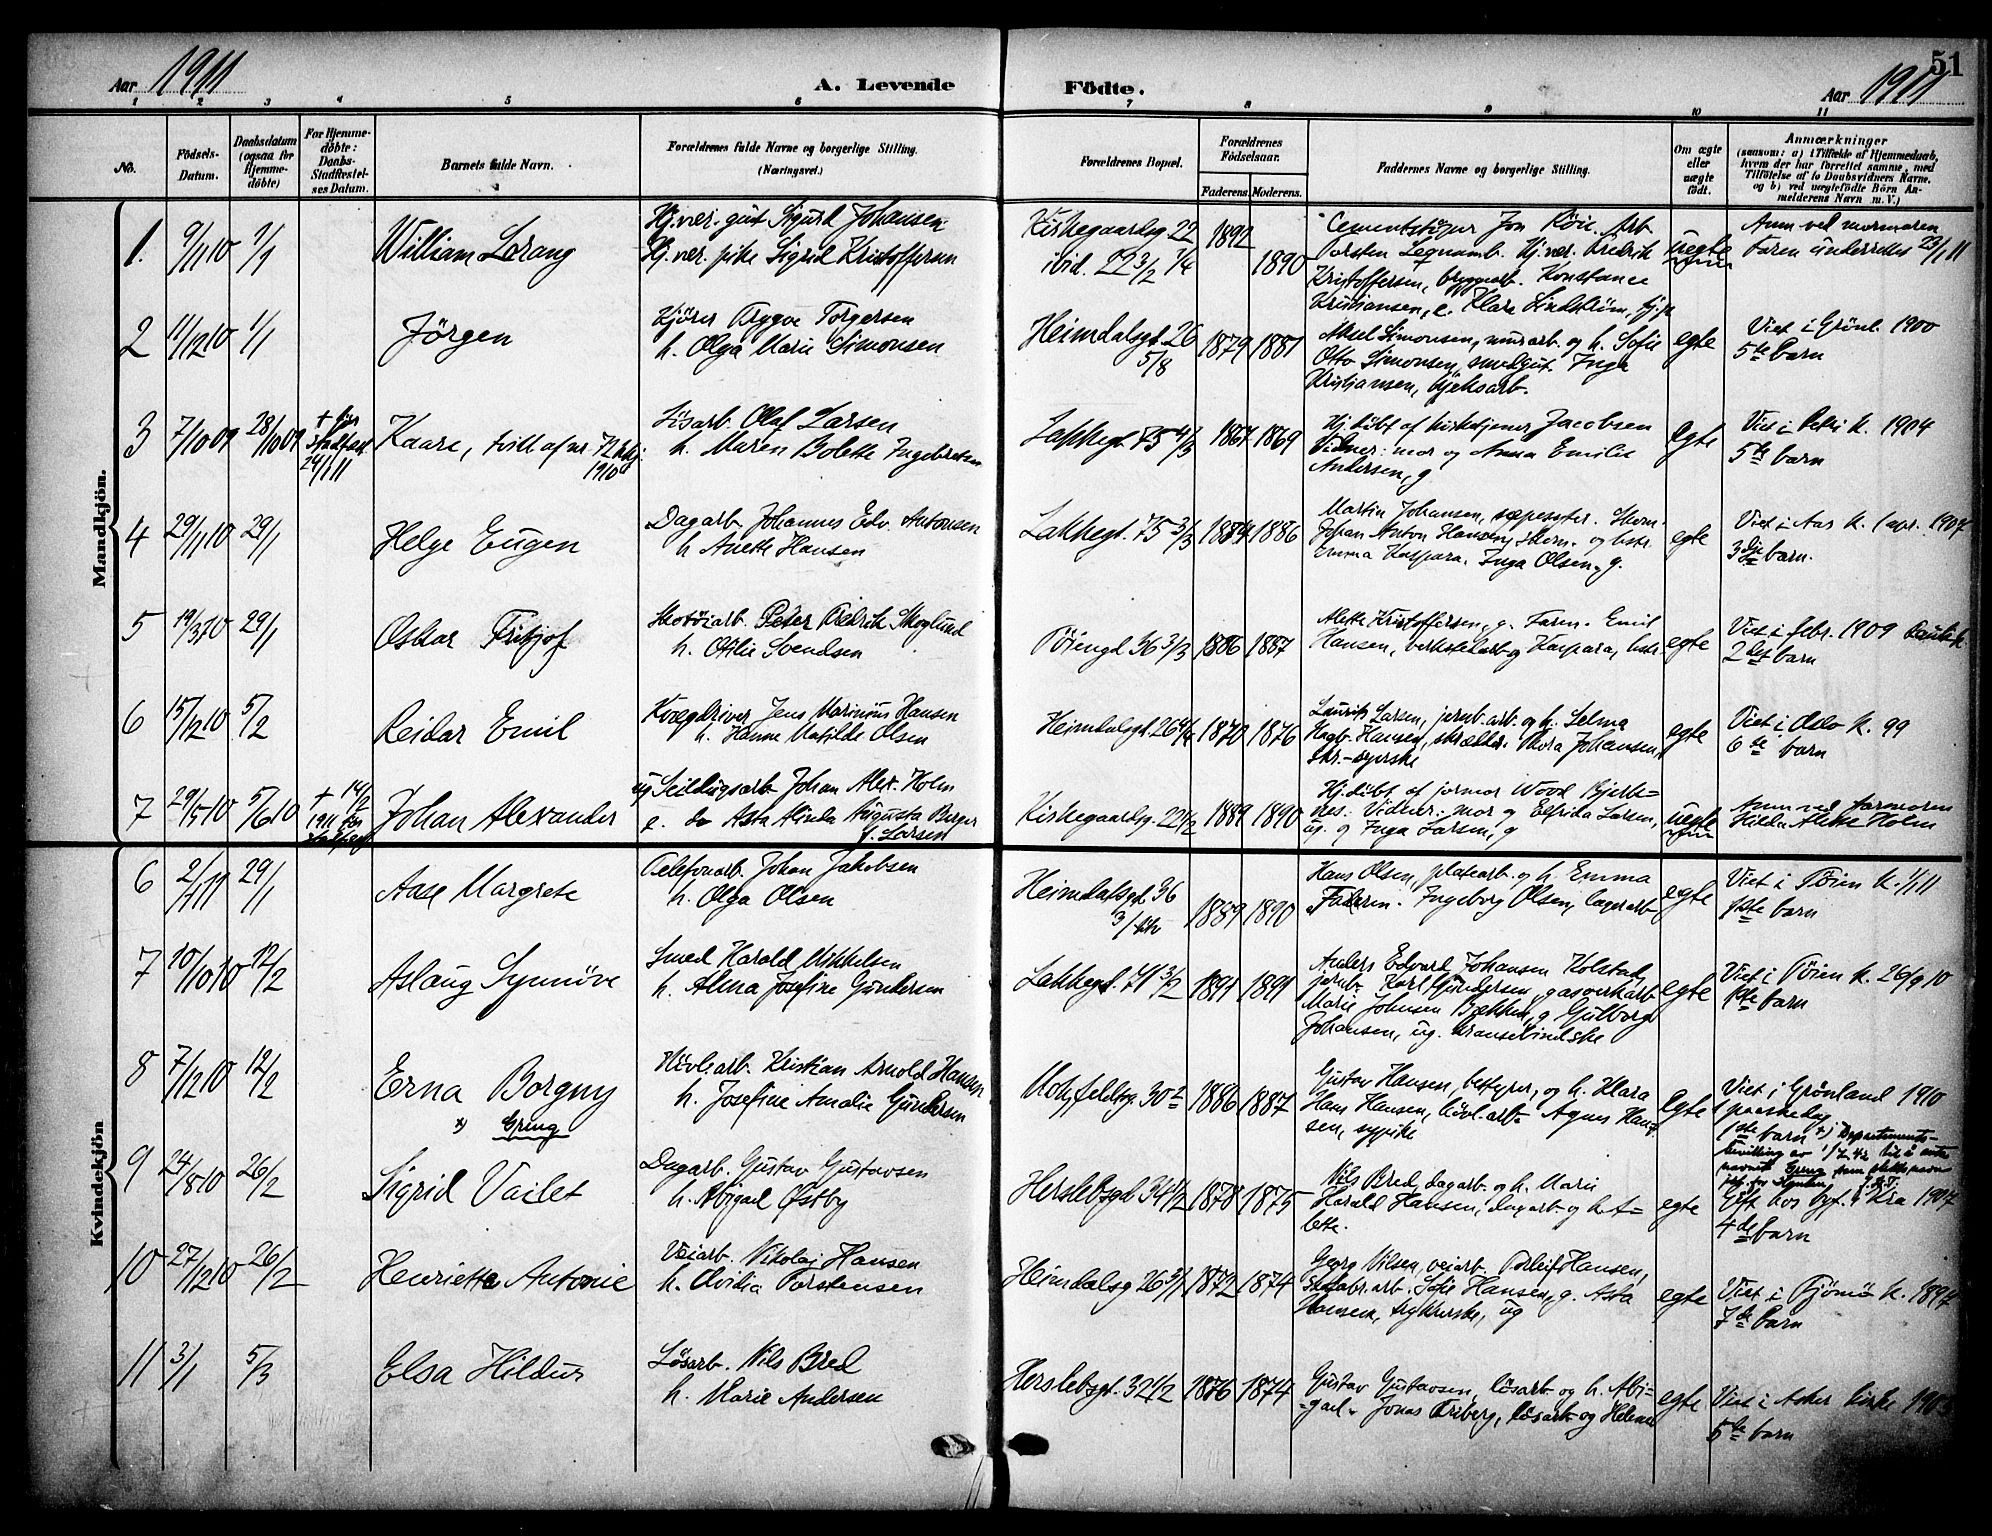 51
Aar 1911
A. Levende
Födte.
Aar 1911
1 2 3 4 5 6 7 8 9 10 11
No.
Födsels-Datum.
Daabsdatum (ogsaa for Hjemmedöbte)
For Hjemmedöbte: Daabs-Stadfæstelses Datum.
Barnets fulde Navn.
Forældrenes fulde Navne og borgerlige Stilling. (Næringsvei.)
Forældrenes Bopæl.
Forældrenes Födselsaar.
Faderens. Moderens.
Faddernes Navne og borgerlige Stilling.
Om ægte eller uægte födt.
Anmærkninger
(saasom: a) i Tilfælde af Hjemmedaab, hvem der har forrettet samme, med Tilföielse af to Daabsvidners Navne, og b) ved uægtefödte Börn Anmelderens Navn m. V.)
Mandkjön.
1. 9/11 10 1/1 William Lorang
Hj.vær. gut Sigurd Johansen
Hj.vær. pike Sigrid Kristoffersen
Kirkegaardsg 22
ibid. 22 3/2 1/4
1892
1890
Cementstöper Jon
Kristoffersen, bryggearb. Konstance
Kristiansen, e. Klara Lindström, hj.p
uegte
Anm ved mormoren
faren underrettet 23/1 11
2 11/12 10 1/1 Jörgen
Kjörer Trygve Torgersen
h. Olga Marie Simonsen
Heimdalsgt 26 5/8
1879 1881
Aksel Simonsen, murarb. og h. Sofie
Otto Simonsen, smedgut. Inga
Kristiansen, kjeksarb.
egte
Viet i Grönl. 1900
5te barn
3 7/10 09 28/10 09 + för stadfæst 24/1 11 Kaare, tvill af nr. 72 1910
Lösarb. Olaf Larsen
h. Maren Bolette Ingebretsen
Lakkegt. 75 4/3
1867 1869
Hj.döbt af kirketjener Jacobsen
Vidner: mor og Anna Emilie
Andersen, g
egte
Viet i Petri k. 1904
5te barn
4 29/11 10 29/1 Helge Eugen
Dagarb. Johannes Edv. Antonsen
h. Anette Hansen
Lakkegt. 75 3/3
1884 1886
Martin Johansen, sæpesyder. Skom.
Johan Anton Hansen, skom. og hstr.
Emma Kaspara. Inga Olsen, g.
egte
Viet i Aas k. 1 apr. 1907
3die barn.
5 19/3 10 29/1 Oskar Fritjof
Skotöiarb. Peter Fredrik Skoglund
h. Otilie Svendsen
Töiengt 36 3/3
1886 1887
Alette Kristoffersen, g. Farm. Emil
Hansen, verkstedarb og Kaspara, hstr
egte
Viet i febr. 1909
2det barn
6 15/12 10 5/2 Reidar Emil
Kvægdriver Jens Marinius Hansen
h. Hanne Matilde Olsen
Heimdalsgt 26 4/4
1870 1876
Laurits Larsen, jernb.arb. og h. Selma
Hagb. Hansen, skrædder. Thora Johansen,
skr.-syerske
egte
Viet i Oslo k. 99
6te barn
7 29/5 10 5/6 10 + 14/1 1911 Johan Alexander
ug Seildugsarb Johan Alex. Holm
e. do Asta Alinda Augusta Berger
f. Larsen
Kirkegaardsg. 22 1/2
1889 1890
Hj.döbt af jormor Wood
Vidner: mor og Elfrida Larsen,
ug. og Inga Larsen, g
uegte
Anm ved farmoren
Hilda Alette Holm
Kvindekjön
6 2/1 11 29/1 Aase Margrete
Telefonarb. Johan Jakobsen
h. Olga Olsen
Heimdalsgt 36
1889 1890
Hans Olsen, platearb. og h. Emma
Faderen. Ingeborg Olsen, lagerarb
egte
Viet i Töien k. 1/1 11
1ste barn
7 10/10 10 12/2 Aslaug Synnöve
Smed Harald Mikkelsen
h. Alma Josefine Gundersen
Lakkegt. 71 3/2
1891 1891
Anders Edvard Johansen Kolstad,
jernb. Karl Gundersen, gasverkarb
Marie Johnsen Bækken, g Gulborg
Johansen, ug. kransebindske
egte
Viet i Töien k. 26/9 10
1ste barn
8 7/12 10 12/2 Erna Borgny
x) Gring
Hövlearb. Kristian Arnold Hansen
h. Josefine Amalie Gundersen
Motzfeldtsg. 30 2
1886 1887
Gustav Hansen, bestyrer, og h. Klara
Hans Hansen, hövl.arb. Agnes Hansen, sypike
egte
Viet i Grönland 1910
1 paaskedag
1ste barn x) Departements-
9 24/8 10 26/2 Sigrid Vailet
Dagarb. Gustav Gustavsen
h. Abigael Østby
Herslebsgt 34 1/2
1878 1875
Nils Bred, dagarb. og h. Marie
Harald Hansen, dagarb og h. A=
lette.
egte
Gift hos byf. i Kra 1907
4de barn
10 27/12 10 26/2 Henriette Antonie
Veiarb. Nikolaj Hansen
h. Ovidia Torstensen
Heimdalsg 26 3/1
1872 1874
Georg Nilsen, veiarb. Torleif Hansen,
Sofie Hansen, g. Asta
Hansen, trykkerske, ug
egte
Viet i Tjömö k. 1897
7de barn
11 3/1 5/3 Elsa Hildur
Lösarb. Nils Bred
h. Marie Andersen
Herslebsgt. 32 1/2
1876 1874
Gustav Gustavsen, lösarb og h. Abi=
gael. Jonas Friberg, lösarb og Helene
egte
Viet i Asker kirke
5te barn